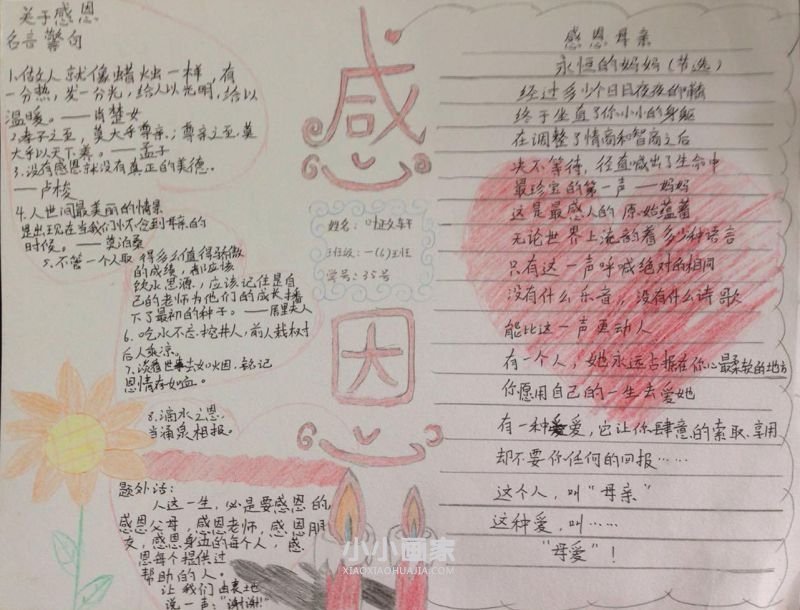 关于感恩
名言警句
1.做人就像蜡烛一样,有
一分热,发一分光,给人以光明,给以
温暖。——肖楚女
2.孝子之至,莫大乎尊亲;尊亲之至,莫
大乎以天下养。——孟子
3.没有感恩就没有真正的美德。
——卢梭
4.人世间最美丽的情景
是出现在当我们怀念到母亲的
时候。——莫泊桑
5.不管一个人取得多么值得骄傲
的成绩,都应该
饮水思源,应该记住是自
己的老师为他们的成长播
下了最初的种子。——居里夫人
6.吃水不忘挖井人,前人栽树
后人乘凉。
7.淡看世事去如烟,铭记
恩情存如血。
8.滴水之恩
当涌泉相报。
题外话:
人这一生,必是要感恩的,
感恩父母,感恩老师,感恩朋
友,感恩身边的每个人,感
恩每个提供过
帮助的人。
让我们由衷地
说一声:“谢谢!”
感
姓名:叶
班级:一(6)班
学号:35号
恩
感恩母亲
永恒的妈妈(节选)
经过多少个日日夜夜的
终于坐直了你小小的身躯
在调整了情商和智商之后
决不等待,径直喊出了生命中
最珍宝的第一声——妈妈
这是最感人的原始蕴蓄
无论世界上流韵着多少种语言
只有这一声呼喊绝对的相同
没有什么乐音,没有什么诗歌
能比这一声更动人
有一个人,她永远占据在你心最柔软的地方
你愿用自己的一生去爱她
有一种爱,它让你肆意的索取、享用
却不要你任何的回报……
这个人,叫“母亲”
这种爱,叫……
“母爱”!
小小画家
XIAOXIAOHUAJIA.COM